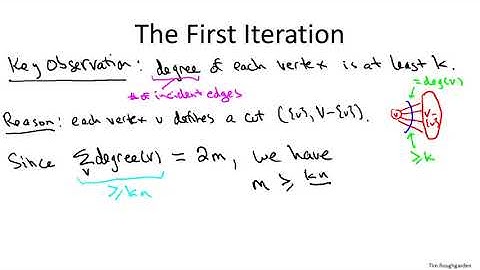 The First Iteration
Key Observation: degree of each vertex is at least k.
# of incident edges
= deg(v)
Reason: each vertex v defines a cut ({v}, V-{v}).
v
V-{v}
≥ k
Since ∑_v degree(v) = 2m, we have
≥ kn
m ≥ kn
Tim Roughgarden